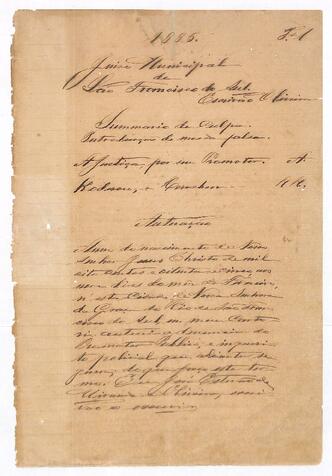 1885. Fl. 1
Juizo Municipal
de
São Francisco do Sul.
Escrivão Oliveira
Summario de Culpa
Introducção de moeda falsa.
A Justiça, por seu Promotor. A.
RR.
Autuação
Anno do nascimento de Nosso
Senhor Jesus Christo de mil
oito centos e oitenta e cinco, aos
nove dias do mez de Fevereiro,
n'esta Cidade de Nossa Senhora
da Graça do Rio de São Fran-
cisco do Sul, em meu Carto-
rio, autuei a denuncia do
Promotor Publico, e inqueri-
to policial que adiante se
segue, do que faço este ter-
mo. Eu João
Oliveira, escri-
vão o escrevi.